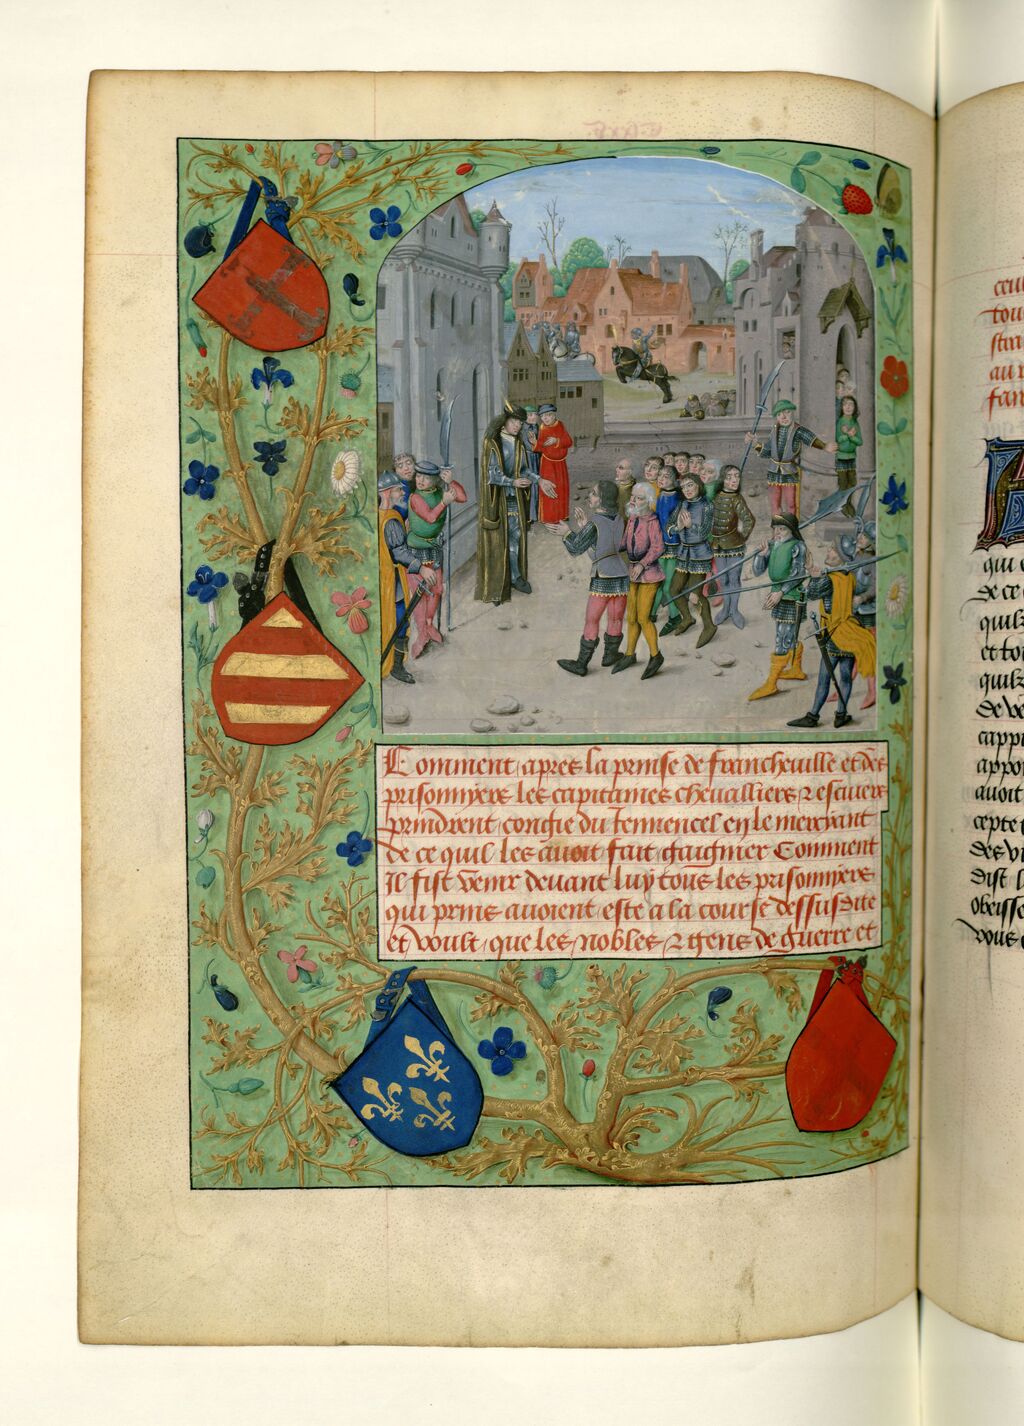 Comment apres la prinse de francheuille et des
prisonnyers les capitaines cheualliers & escuiers
prindrent congie du en le mercyant
de ce quil les auoit fait gaignier Comment
Il fist venir deuant luy tous les prisonnyers
qui prins auoient este a la course dessusdite
et voult que les nobles & gens de guerre et
ceul
tou
au
fan
qui
de ce
quilz
et to
quilz
de
appo
auoit
cepte
des
dist l
obeisse
vous